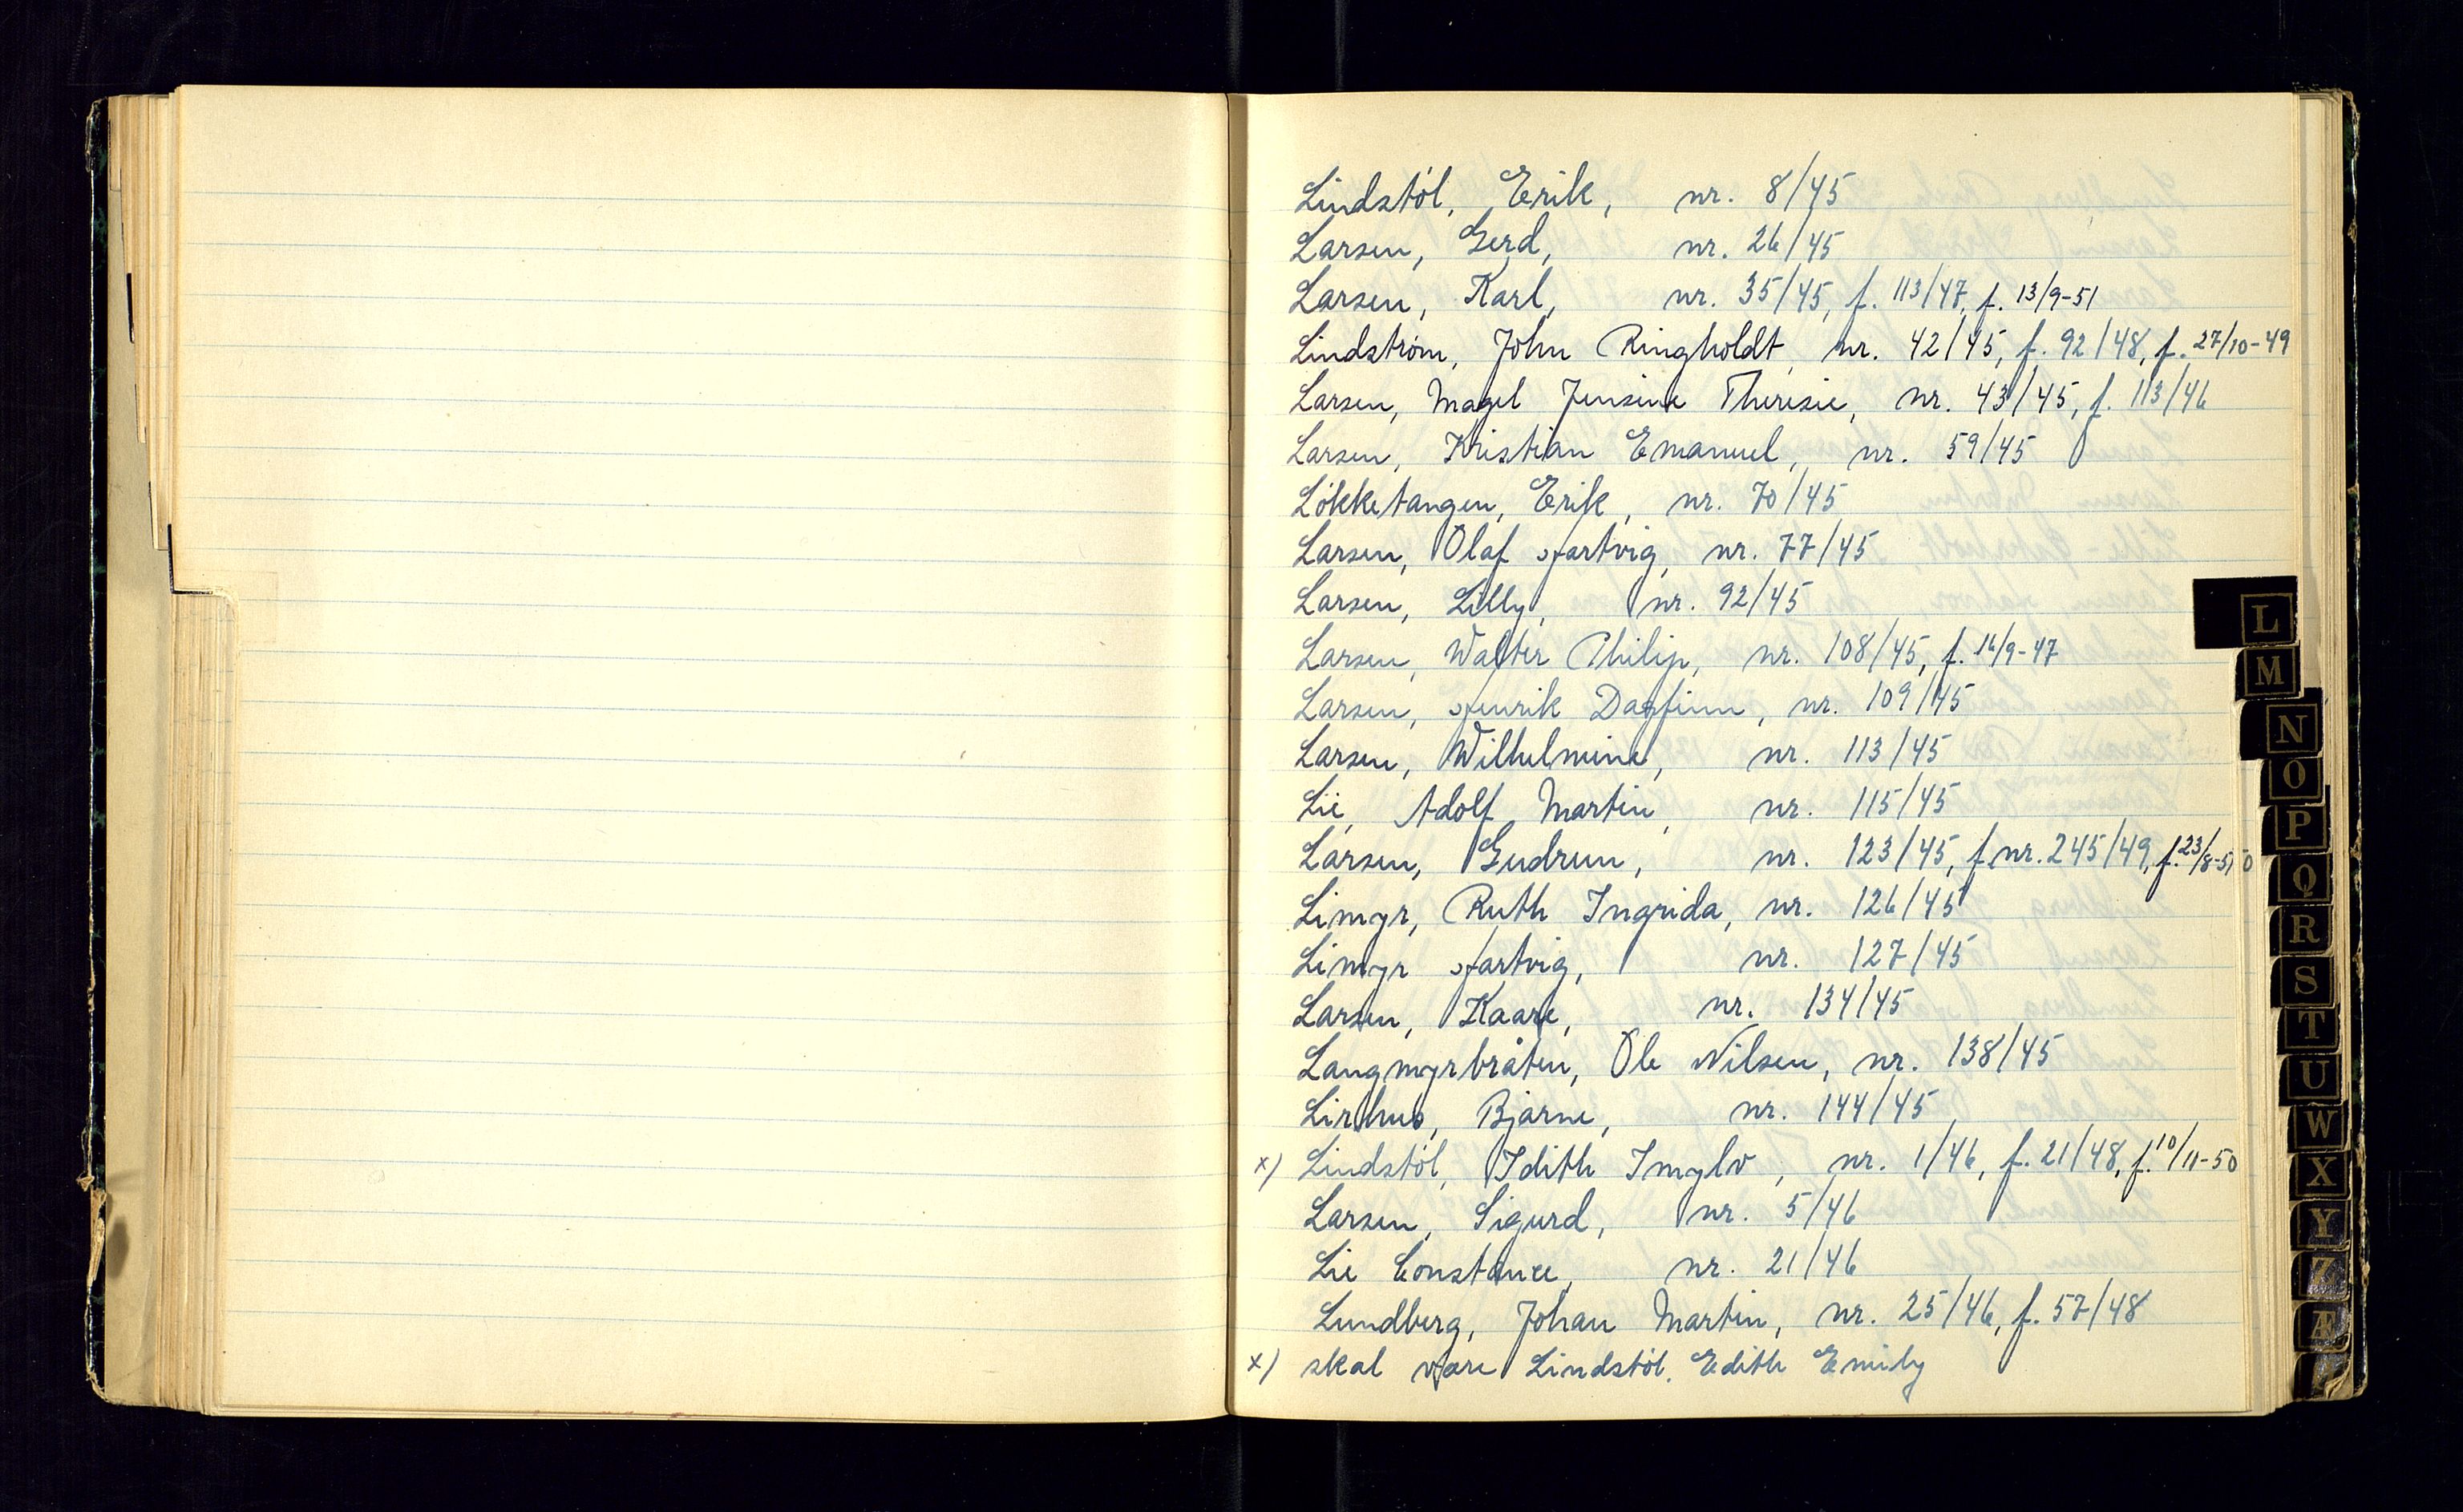 Lindstøl, Erik, nr. 8/45
Larsen, Gerd, nr. 26/45
Larsen, Karl, nr. 35/45, f. 113/47, f. 13/9-51
Lindstrøm, John Ringholdt, nr. 42/45, f. 92/48, f. 27/10-49
Larsen, Magel Jensine Theresie, nr. 43/45, f. 113/46
Larsen, Kristian Emanuel, nr. 59/45
Løkketangen, Erik, nr. 70/45
Larsen, Olaf Hartvig, nr. 77/45
Larsen, Lilly, nr. 92/45
Larsen, Walter Philip, nr. 108/45, f. 16/9-47
Larsen, Henrik Dagfinn, nr. 109/45
Larsen, Wilhelmine, nr. 113/45
Lie, Adolf Martin, nr. 115/45
Larsen, Gudrun, nr. 123/45, f. nr. 245/49, f. 23/8-50
Limyr, Ruth Ingrida, nr. 126/45
Limyr Hartvig, nr. 127/45
Larsen, Kaare, nr. 134/45
Langmyrbråten, Ole Nilsen, nr. 138/45
Lirhus, Bjarne, nr. 144/45
x) Lindstøl, Idith Imylv, nr. 1/46, f. 21/48, f. 10/11-50
Larsen, Sigurd, nr. 5/46
Lie Constance, nr. 21/46
Lundberg, Johan Martin, nr. 25/46, f. 57/48
x) skal være Lindstøl, Edith Emily
L
M
N
O
P
Q
R
S
T
U
W
X
Y
Z
Æ